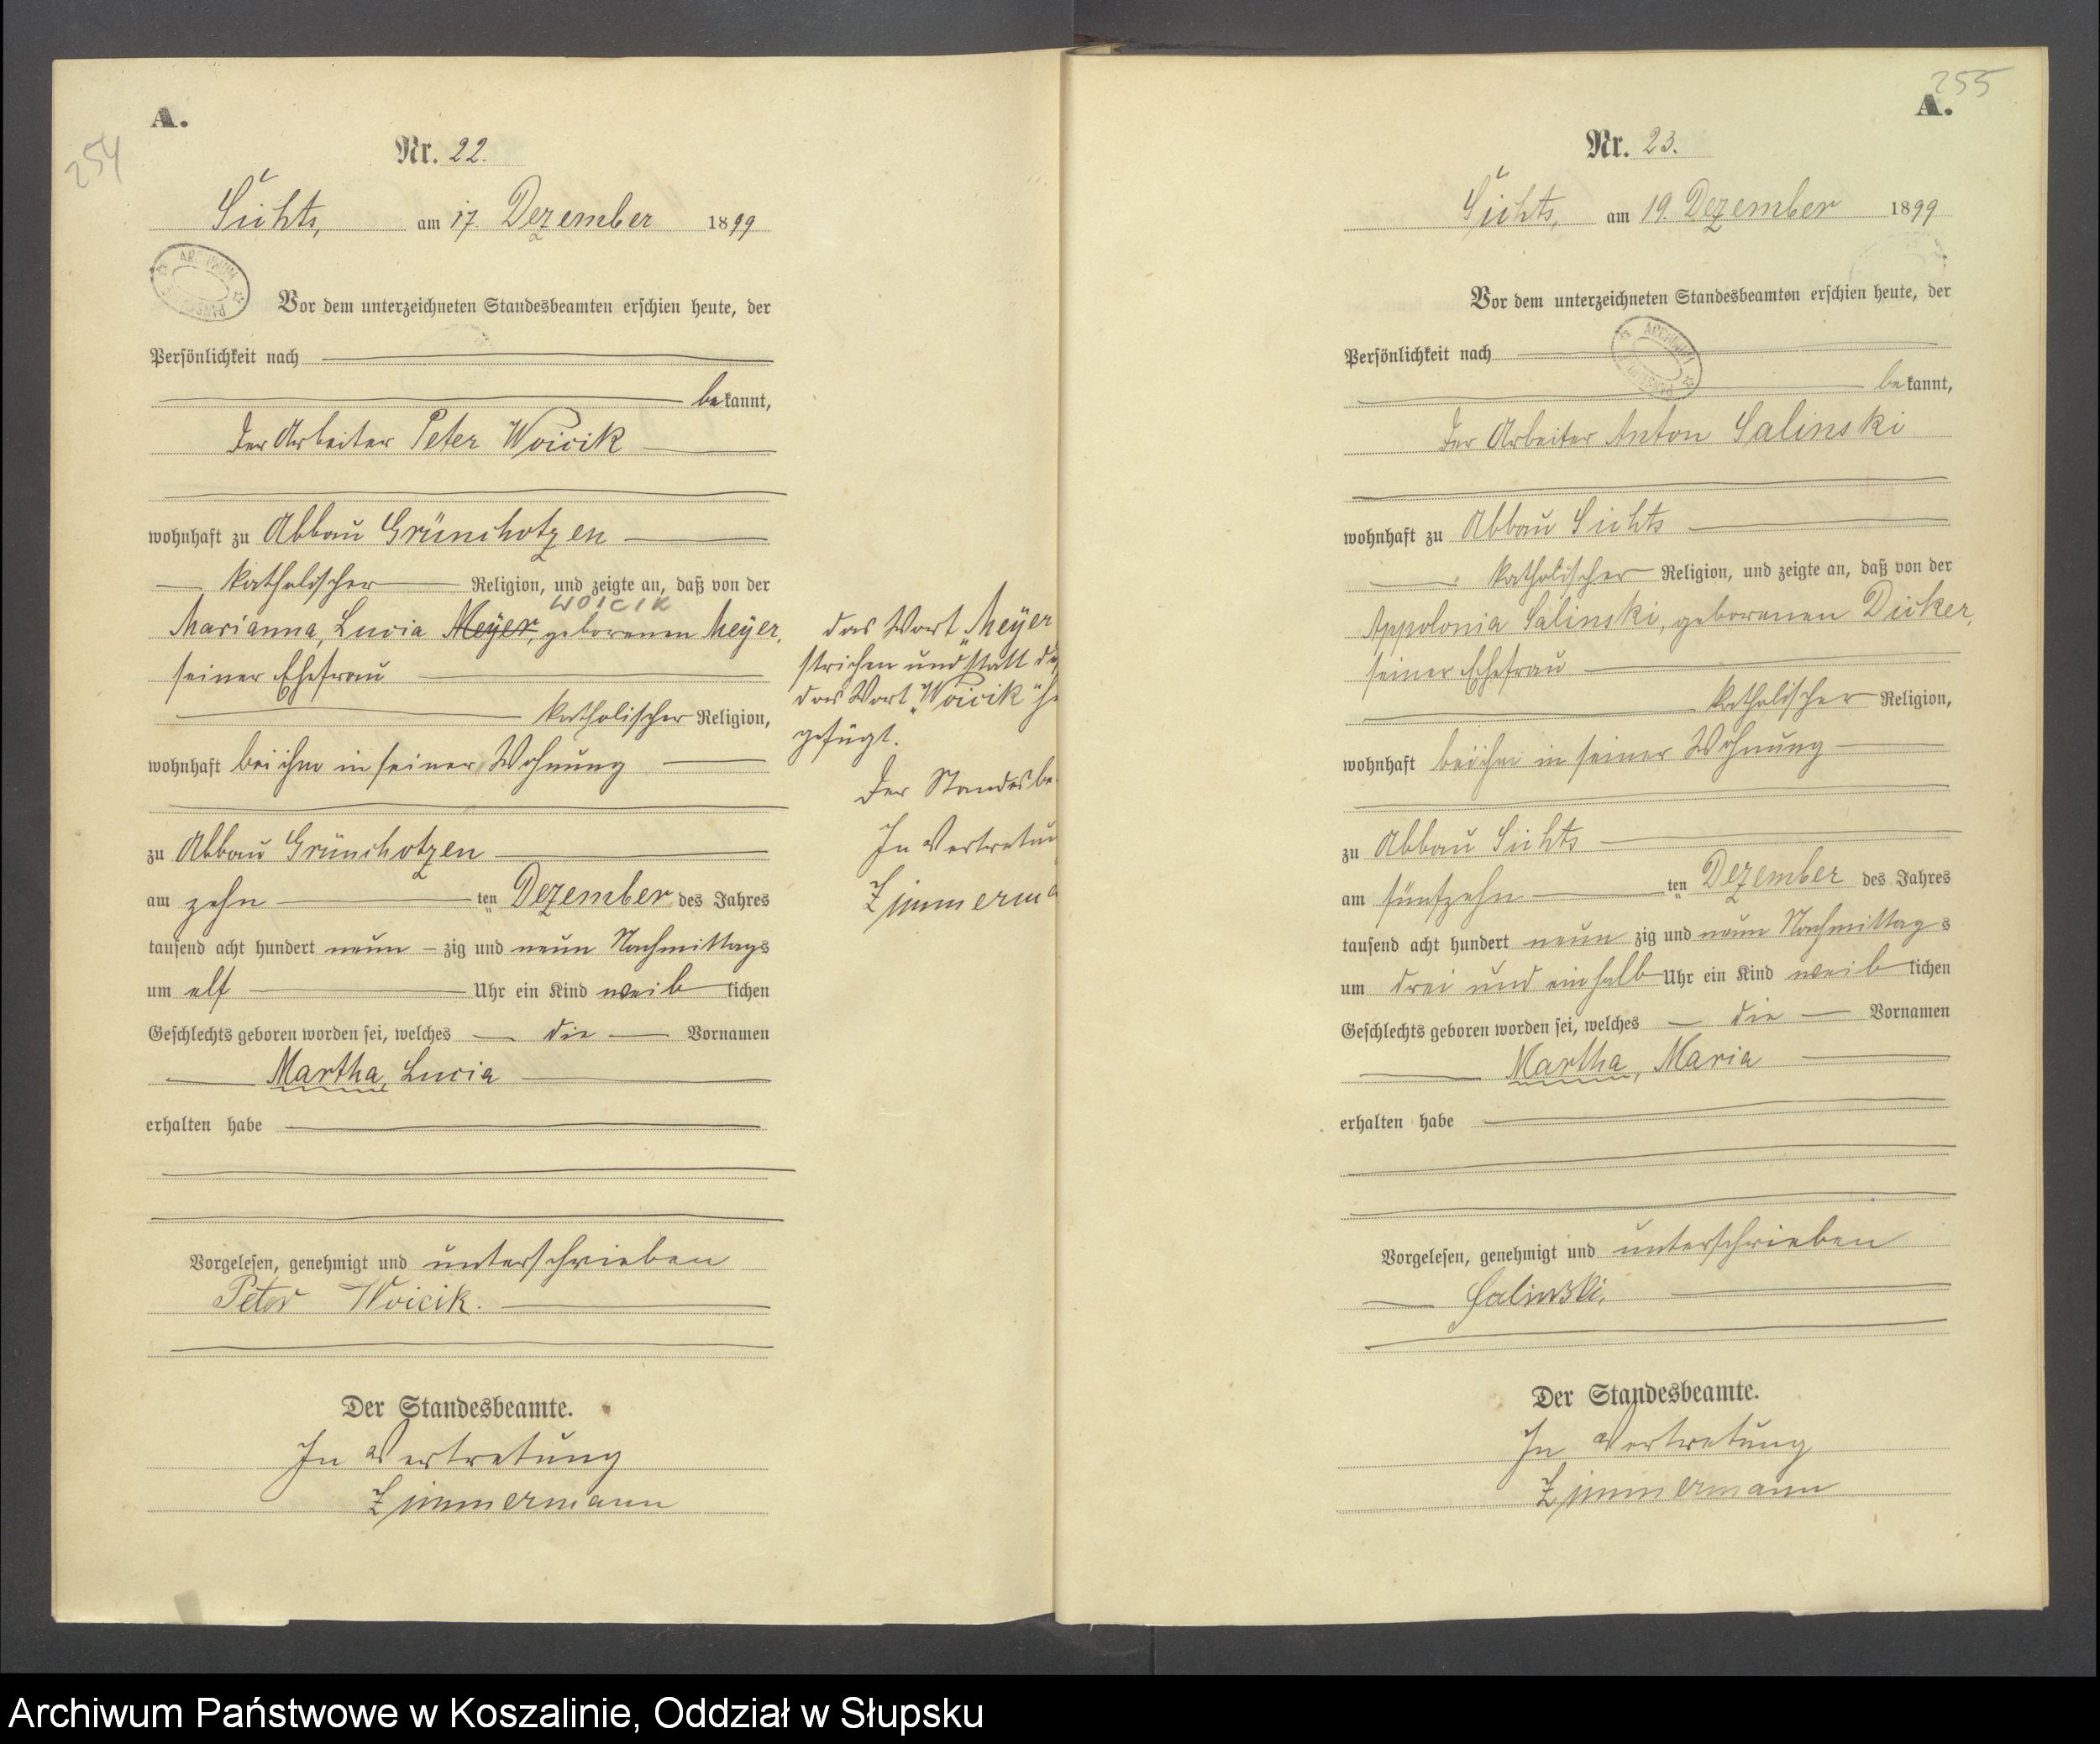 254
A.
Nr. 22.
Sichts, am 17. Dezember 1899
ARCHIWUM
Vor dem unterzeichneten Standesbeamten erschien heute, der
Persönlichkeit nach
bekannt,
der Arbeiter Peter Woicik
wohnhaft zu Abbau Grünchotzen
katholischer Religion, und zeigte an, daß von der
WOICIK
Marianna, Lucia Meÿer, geborenen Meÿer,
seiner Ehefrau
katholischer Religion,
wohnhaft bei ihm in seiner Wohnung
zu Abbau Grünchotzen
am zehnten Dezember des Jahres
tausend acht hundert neun zig und neun Nachmittags
um elf Uhr ein Kind weiblichen
Geschlechts geboren worden sei, welches die Vornamen
Martha, Lucia
erhalten habe
Vorgelesen, genehmigt und unterschrieben
Peter Woicik.
Der Standesbeamte.
In Vertretung
Zimmermann
das Wort „Meÿer
strichen und statt
das Wort „Woicik"
gefügt.
Der Standesbe
In Vertretun
Zimmerma
255
A.
Nr. 23.
Sichts, am 19. Dezember 1899
Vor dem unterzeichneten Standesbeamten erschien heute, der
ARCHIWUM
Persönlichkeit nach
bekannt,
der Arbeiter Anton Salinski
wohnhaft zu Abbau Sichts
katholischer Religion, und zeigte an, daß von der
Appolonia Salinski, geborenen Dicker,
seiner Ehefrau
katholischer Religion,
wohnhaft bei ihm in seiner Wohnung
zu Abbau Sichts
am fünfzehnten Dezember des Jahres
tausend acht hundert neun zig und neun Nachmittags
um drei und ein halb Uhr ein Kind weiblichen
Geschlechts geboren worden sei, welches die Vornamen
Martha, Maria
erhalten habe
Vorgelesen, genehmigt und unterschrieben
Salinski.
Der Standesbeamte.
In Vertretung
Zimmermann
Archiwum Państwowe w Koszalinie, Oddział w Słupsku